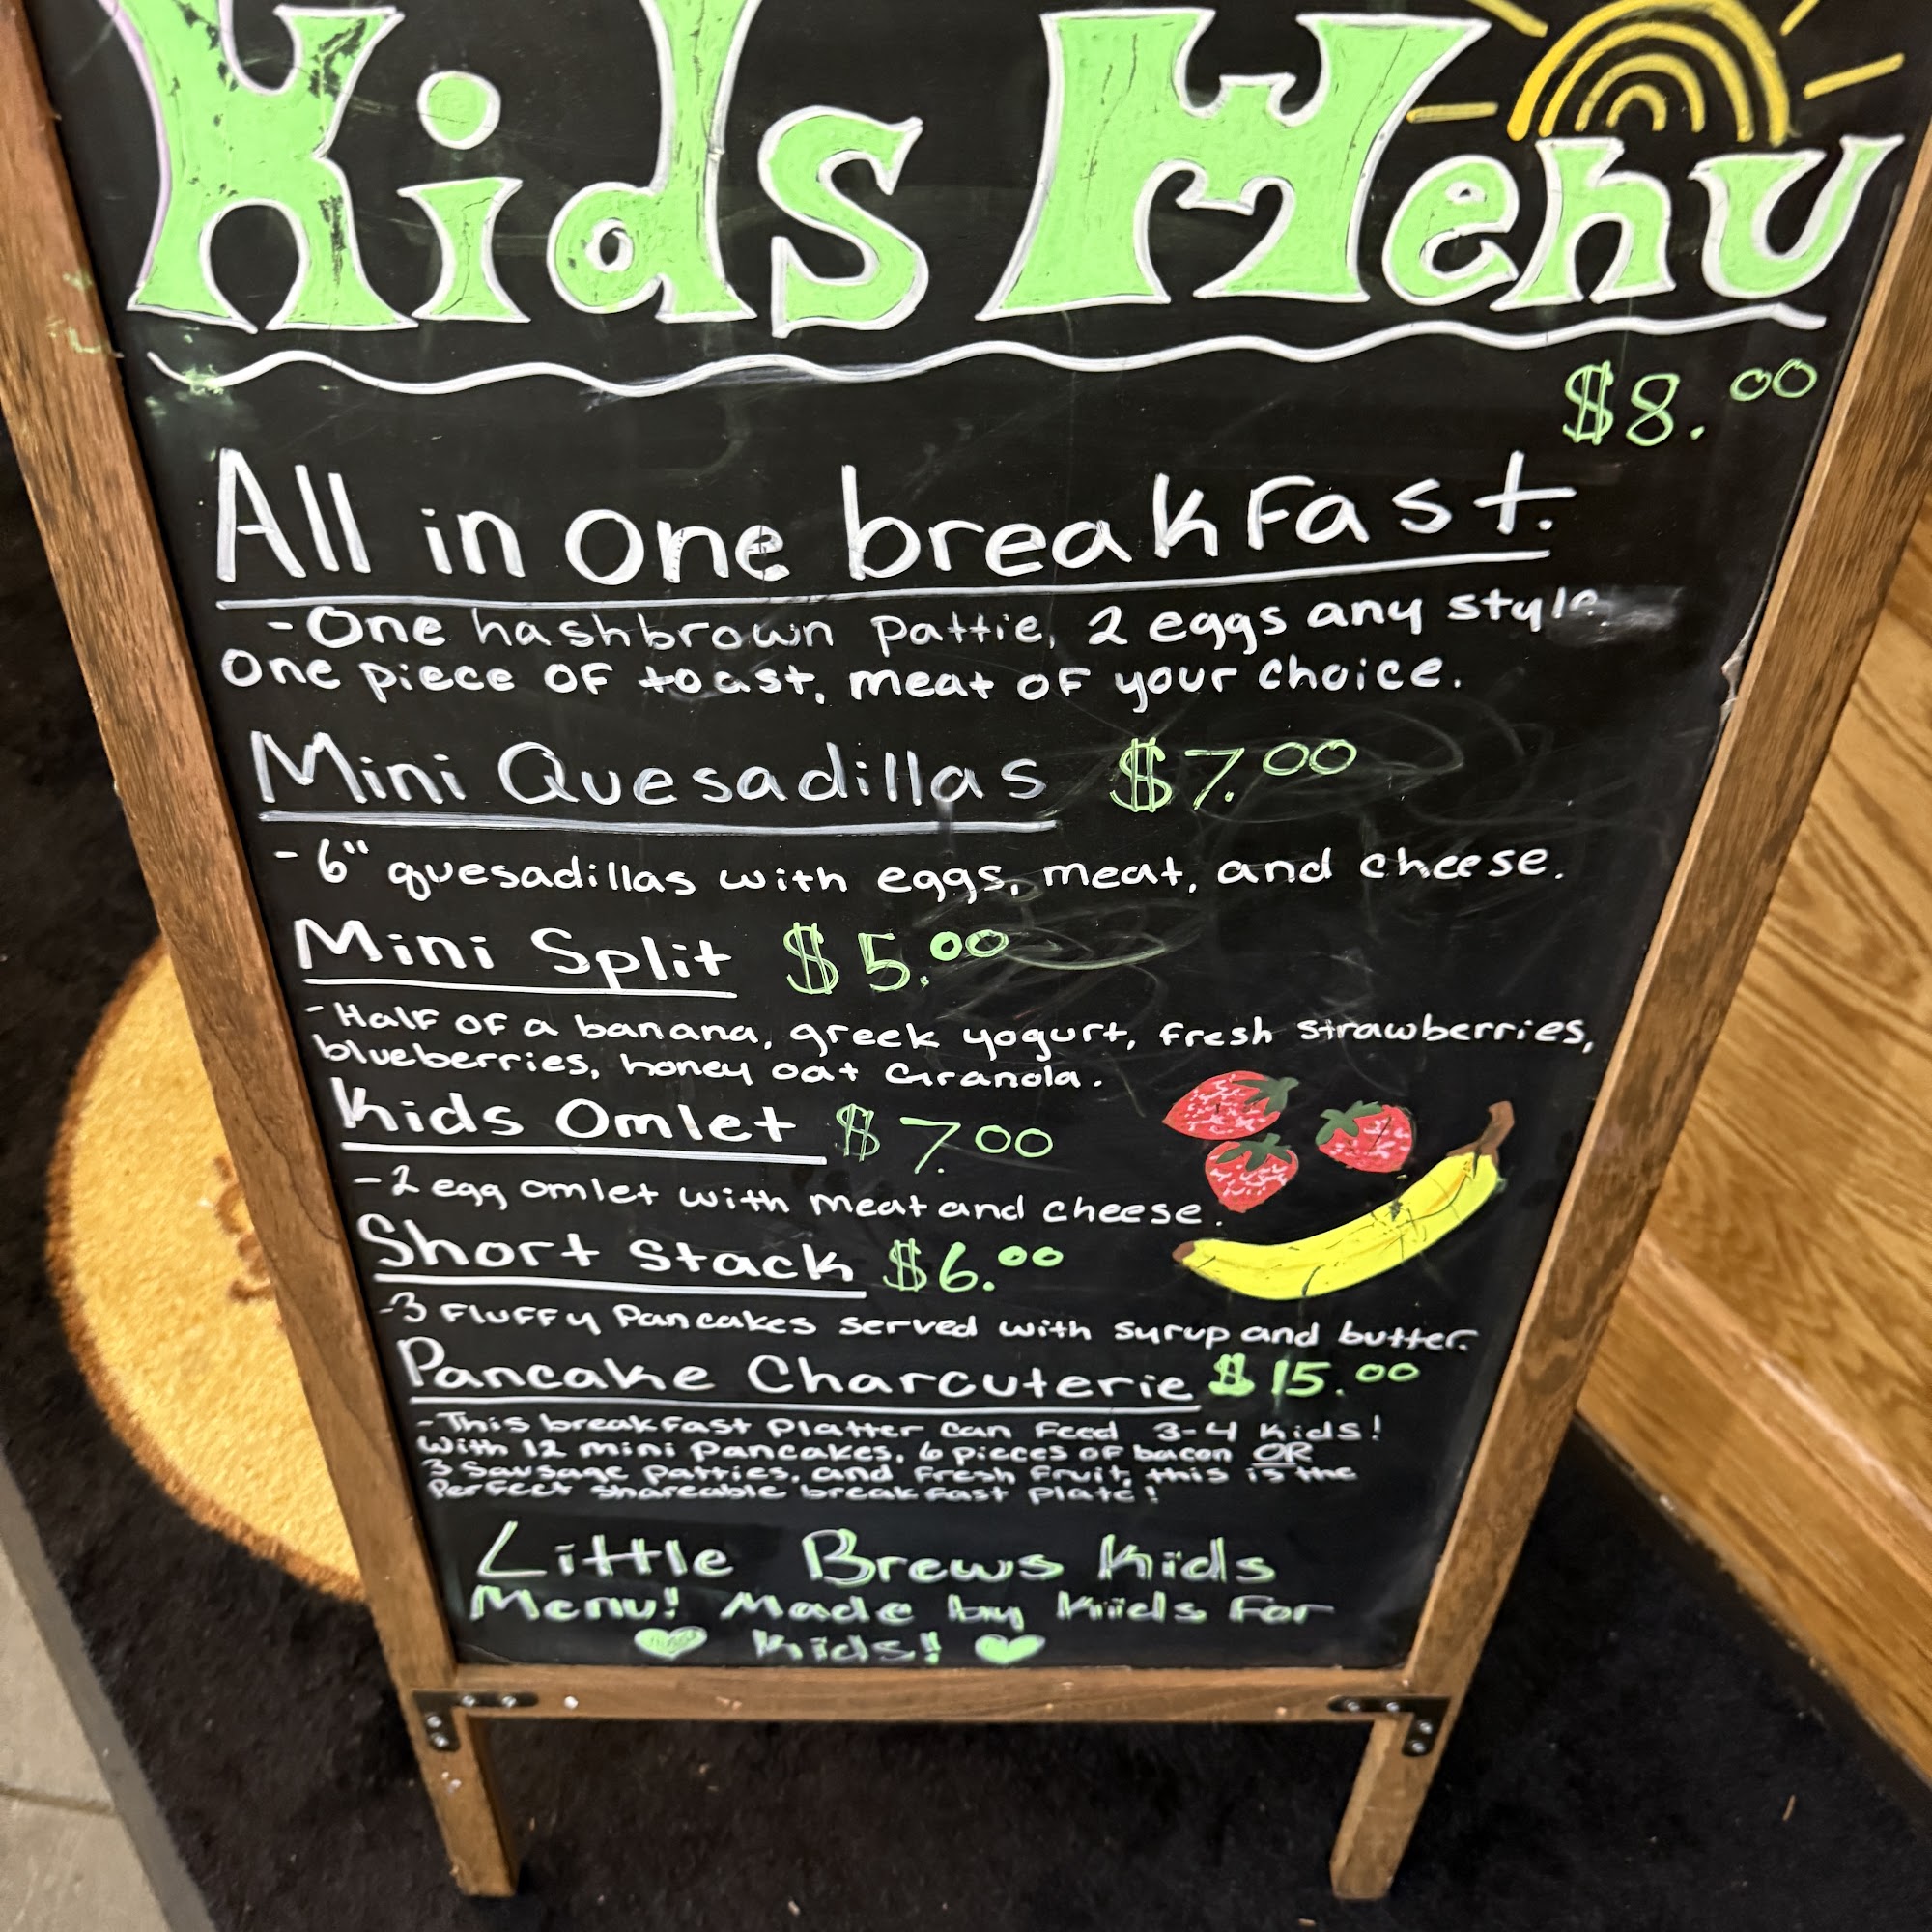 Kids Menu
$8.00
All in one breakfast.
-One hashbrown pattie, 2 eggs any style
One piece of toast, meat of your choice.
Mini Quesadillas $7.00
-6" quesadillas with eggs, meat, and cheese.
Mini Split $5.00
-Half of a banana, greek yogurt, fresh strawberries,
blueberries, honey oat Granola.
Kids Omlet $7.00
-2 egg omlet with meat and cheese.
Short Stack $6.00
-3 Fluffy Pancakes served with syrup and butter.
Pancake Charcuterie $15.00
-This breakfast Platter Can Feed 3-4 kids!
With 12 mini Pancakes, 6 pieces of bacon OR
3 Sausage Patties, and Fresh Fruit, this is the
Perfect shareable breakfast plate!
Little Brews Kids
Menu! Made by Kids For
Kids!